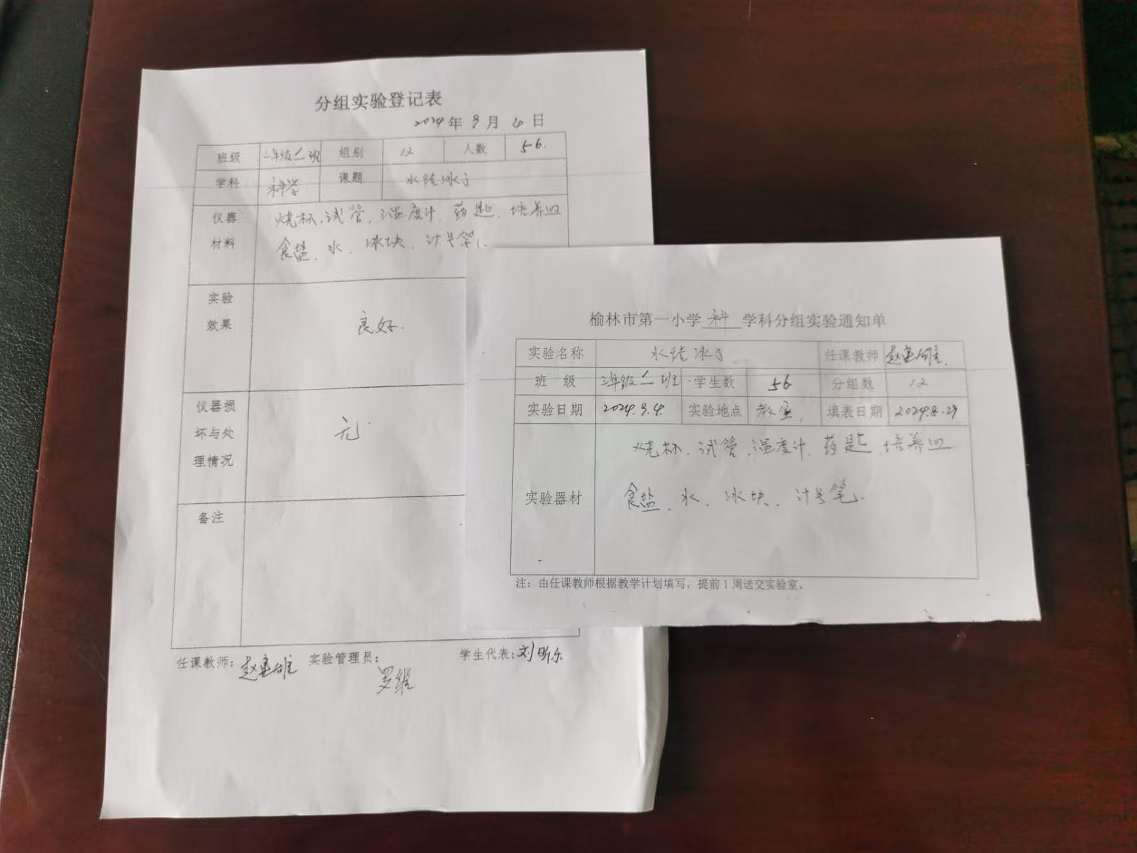 分组实验登记表
2024年9月4日
班级 三年级二班 组别 12 人数 56.
学科 科学 课题 水结冰了
仪器材料 烧杯、试管、温度计、药匙、培养皿
食盐、水、冰块、计号笔、
实验效果 良好.
仪器损坏与处理情况 无.
备注
任课教师: 实验管理员: 学生代表:刘昕乐
罗维
榆林市第一小学 科 学科分组实验通知单
实验名称 水结冰了 任课教师
班 级 三年级二班 学生数 56 分组数 12
实验日期 2024.9.4 实验地点 教室 填表日期 2024.8.29
实验器材 烧杯、试管、温度计、药匙、培养皿
食盐、水、冰块、计号笔、
注:由任课教师根据教学计划填写,提前1周送交实验室。